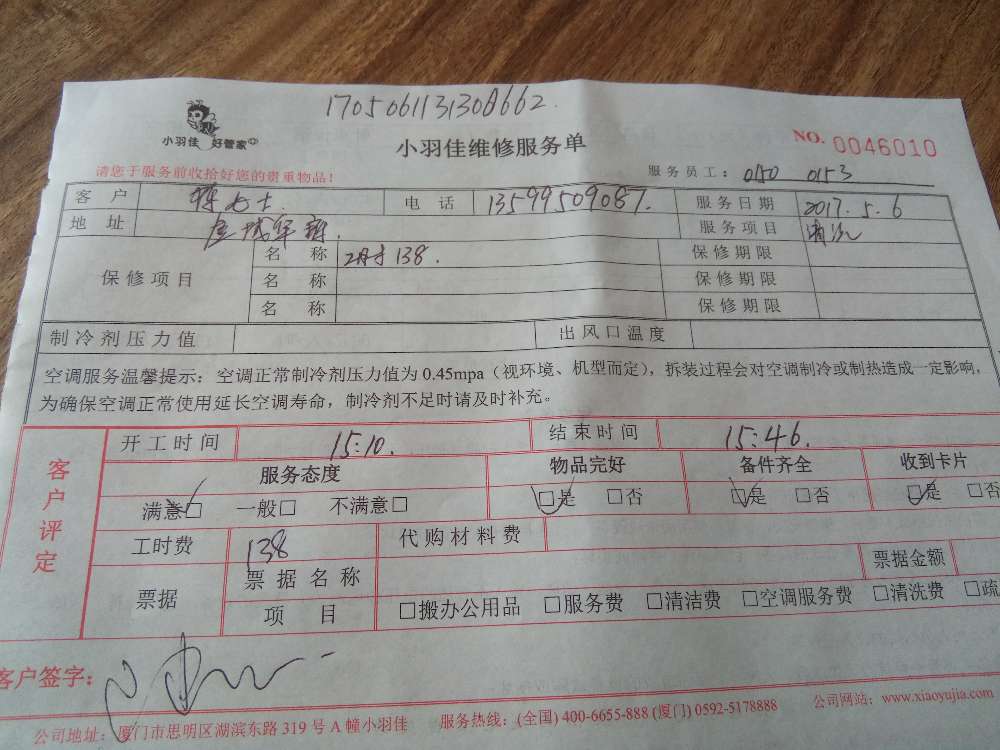 1705061131308662
小羽佳 好管家
小羽佳维修服务单
NO. 0046010
请您于服务前收拾好您的贵重物品!
服务员工: 0150 0153
客户 女士 电话 13599509087. 服务日期 2017.5.6
地址 金城华 服务项目 清洗
保修项目 名称 138. 保修期限
名称 保修期限
名称 保修期限
制冷剂压力值 出风口温度
空调服务温馨提示：空调正常制冷剂压力值为0.45mpa（视环境、机型而定），拆装过程会对空调制冷或制热造成一定影响，
为确保空调正常使用延长空调寿命，制冷剂不足时请及时补充。
客户评定
开工时间 15:10. 结束时间 15:46.
服务态度 物品完好 备件齐全 收到卡片
满意□ 一般□ 不满意□ □是 □否 □是 □否 □是 □否
工时费 138 代购材料费
票据 票据名称 票据金额
项目 □搬办公用品 □服务费 □清洁费 □空调服务费 □清洗费 □疏
客户签字：
公司地址：厦门市思明区湖滨东路319号A幢小羽佳 服务热线：(全国) 400-6655-888 (厦门) 0592-5178888 公司网站：www.xiaoyujia.com